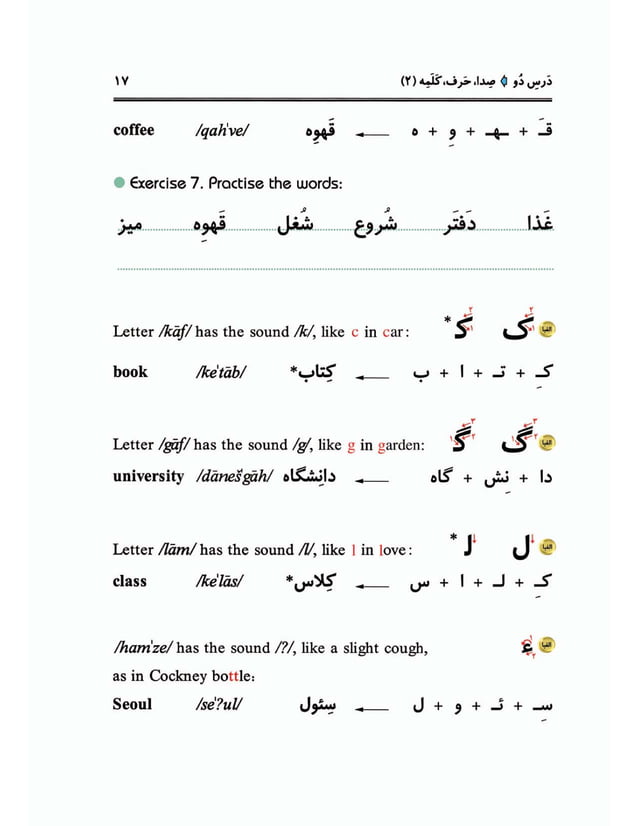 دَرسِ دُو صِدا، حَرف، کَلَمِه (۲) ۱۷
coffee /qahˈve/ قَهوِه ← قـَ + ـهـ + وِ + ه
Exercise 7. Practise the words:
غَذا دَفتَر شُروع شُغل قَهوِه میز
Letter /kāf/ has the sound /k/, like c in car: * کـ ک الفبا
book /keˈtāb/ کِتاب* ← کـِ + تـ + ا + ب
Letter /gāf/ has the sound /g/, like g in garden: گـ گ الفبا
university /dānešgāh/ دانِشگاه ← دا + نِش + گاه
Letter /lām/ has the sound /l/, like l in love: * لـ ل الفبا
class /keˈlās/ کِلاس* ← کـِ + لـ + ا + س
/hamˈze/ has the sound /?/, like a slight cough, ء الفبا
as in Cockney bottle:
Seoul /seˈ?ul/ سِئول ← سـِ + ئـ + و + ل